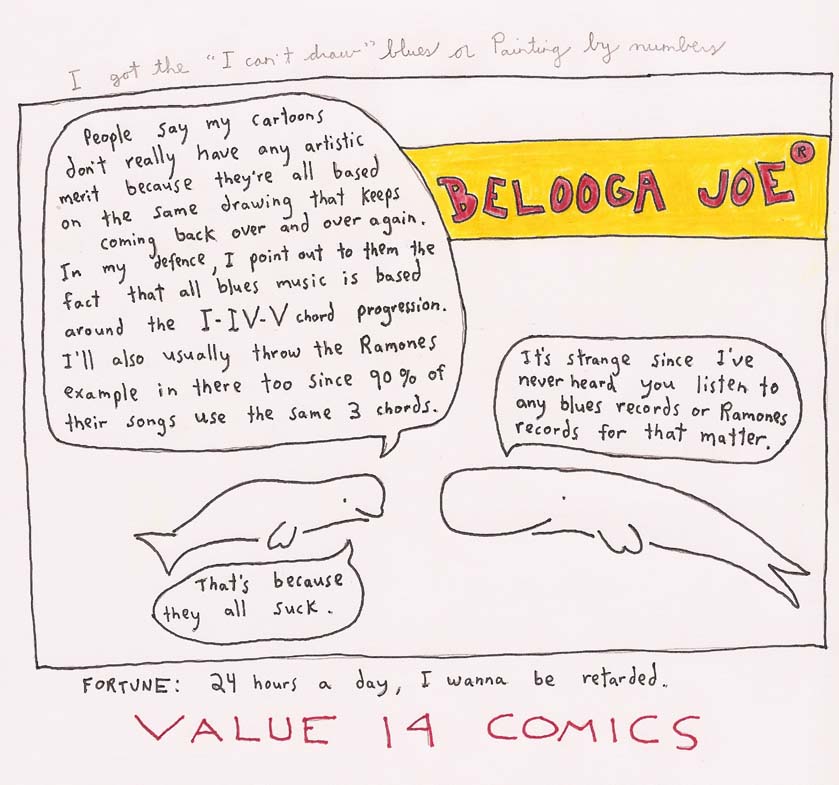 I got the "I can't draw" blues or Painting by numbers
BELOOGA JOE®
People say my cartoons
don't really have any artistic
merit because they're all based
on the same drawing that keeps
coming back over and over again.
In my defence, I point out to them the
fact that all blues music is based
around the I-IV-V chord progression.
I'll also usually throw the Ramones
example in there too since 90% of
their songs use the same 3 chords.
It's strange since I've
never heard you listen to
any blues records or Ramones
records for that matter.
That's because
they all suck.
FORTUNE: 24 hours a day, I wanna be retarded.
VALUE 14 COMICS